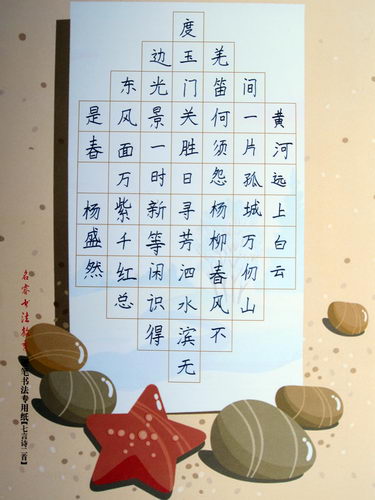 黄河远上白云
间一片孤城万仞山
羌笛何须怨杨柳春风不
度玉门关胜日寻芳泗水滨无
边光景一时新等闲识得
东风面万紫千红总
是春 杨盛然
名睿书法教
笔书法专用纸【七言诗二首】